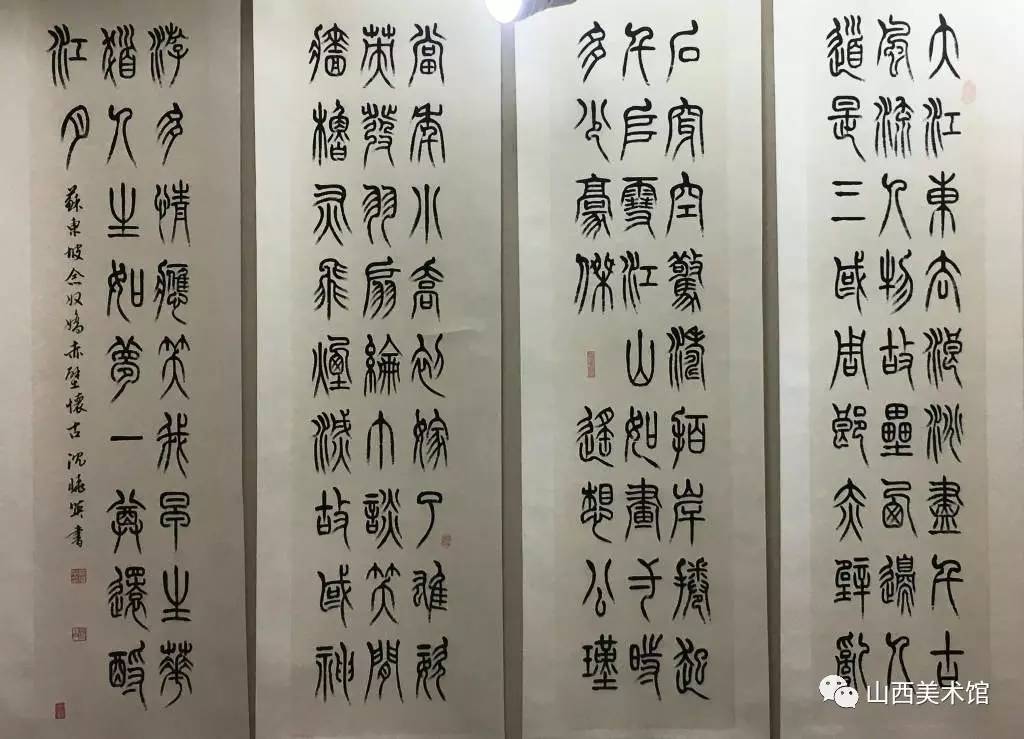 大江東去浪淘盡千古
風流人物故壘西邊人
道是三國周郎赤壁亂
石穿空驚濤拍岸捲起
千堆雪江山如畫一時
多少豪傑 遙想公瑾
當年小喬初嫁了雄姿
英發羽扇綸巾談笑間
檣櫓灰飛煙滅故國神
游多情應笑我早生華
髮人生如夢一尊還酹
江月
蘇東坡念奴嬌赤壁懷古 沈書
山西美术馆